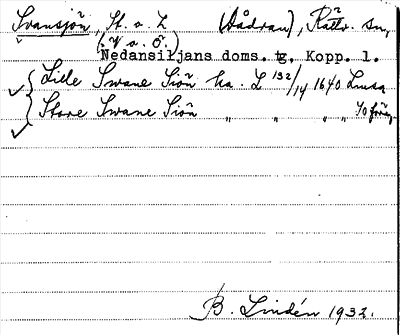 Svansjön, St. o. L (Dådran), Rättv. sn,
(: Y. o. Ö.)
Nedansiljans doms. tg, Kopp. l.
Lille Swane Siön ha. L 132/14 1640 Lmsa
Store Swane Siön " " " " 40 förg.
B. Lindén 1932.